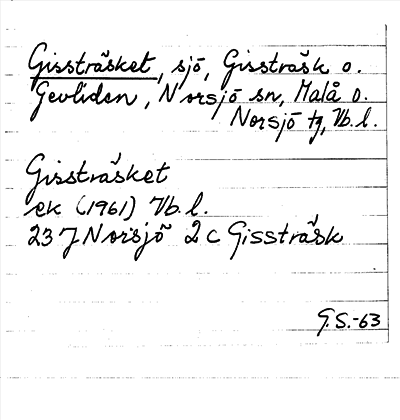 Gissträsket, sjö, Gissträsk o.
Gevliden, Norsjö sn, Malå o.
Norsjö tg, Vb. l.
Gissträsket
ek (1961) Vb. l.
23 J Norsjö 2 c Gissträsk
G.S.-63